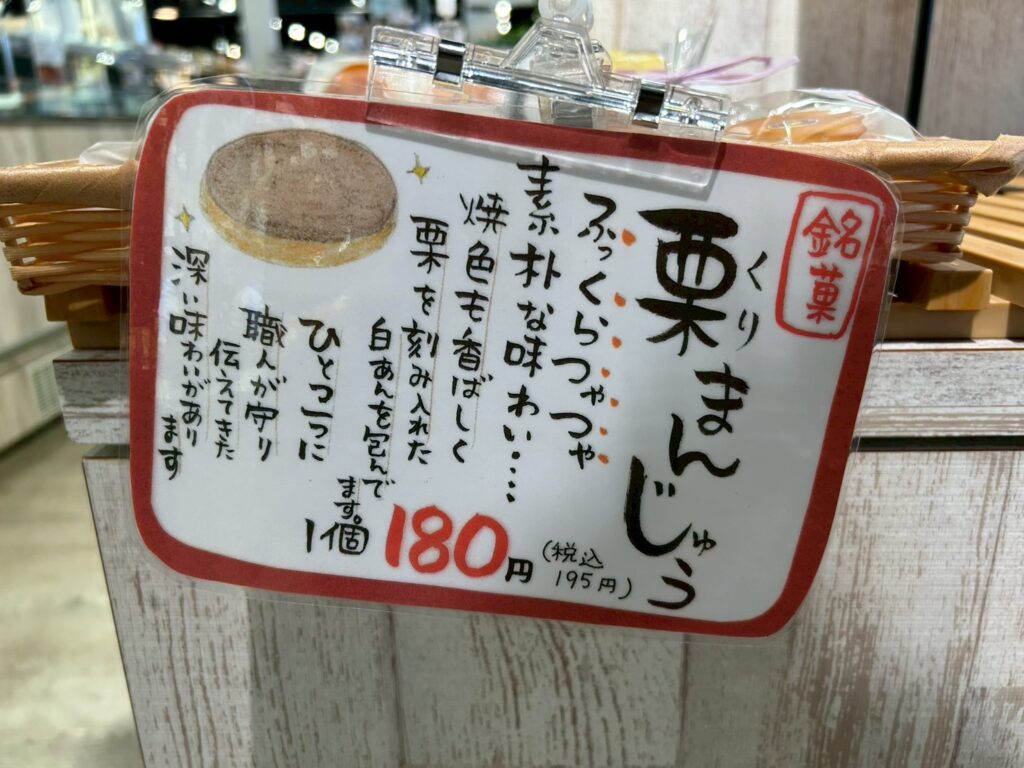 銘菓
栗まんじゅう
くり
ふっくらつやつや
素朴な味わい・・・・
焼色も香ばしく
栗を刻み入れた
白あんを包んで
ます。
ひとつ一つに
職人が守り
伝えてきた
深い味わいがあり
ます
1個 180円 (税込 195円)